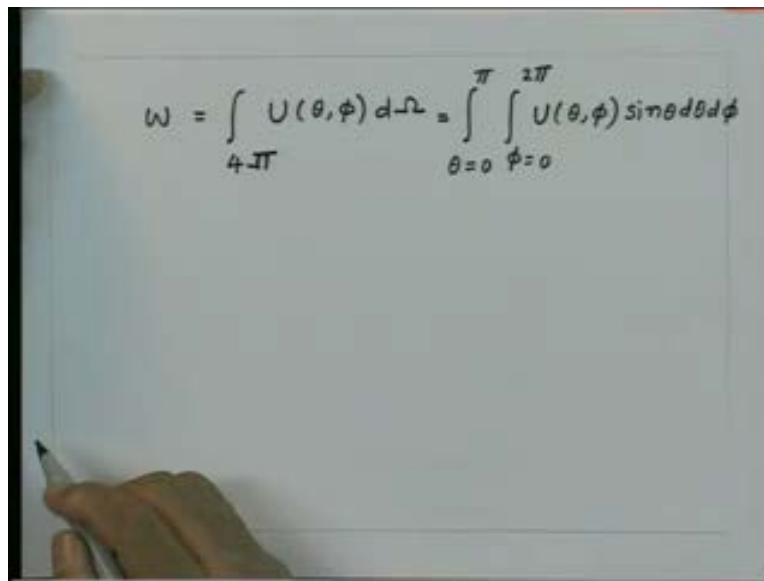 W = ∫_{4π} U(θ,ϕ) dΩ = ∫_{θ=0}^{π} ∫_{ϕ=0}^{2π} U(θ,ϕ) sinθ dθ dϕ